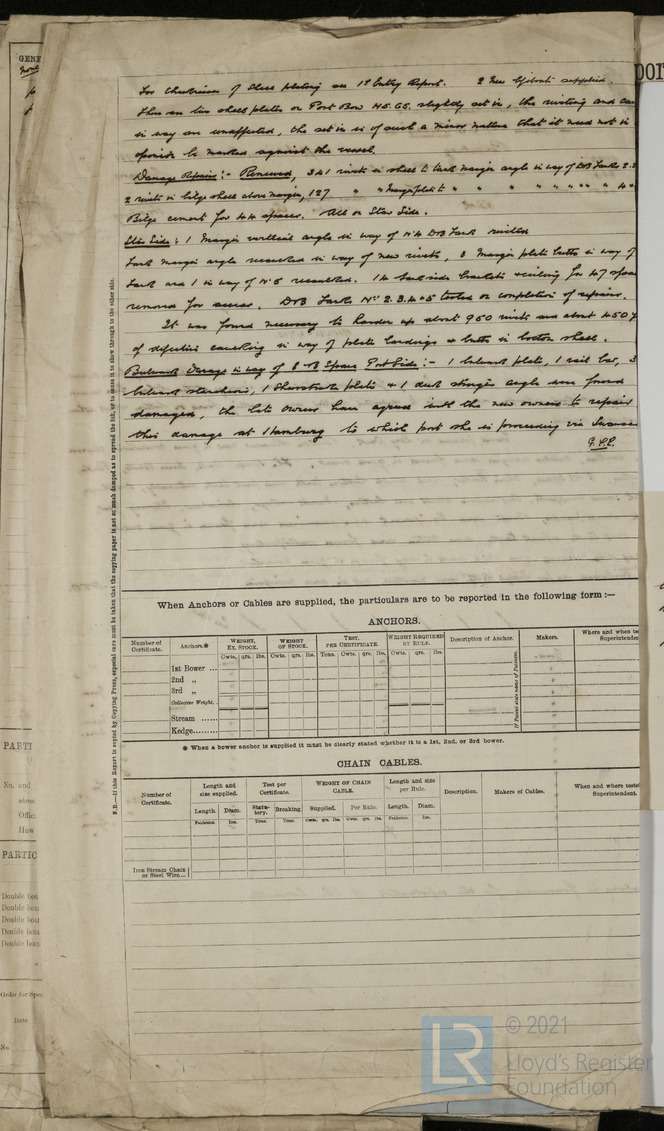 For thickness of Shell plating see 1st Entry Report. 2 New Lifeboats supplied.
in way are unaffected, the set in is of such a minor nature that it need not in
opinion be marked against the vessel.
Damage Repairs :- Renewed, 341 rivets in shell to tank margin angle in way of DB Tanks 2.3
2 rivets in bilge shell above margin, 127 " " Margin plate to " " " " " " " 4 "
Bilge cement for 44 spaces. All on Star Side.
Star Side : 1 Margin vertical angle in way of No 4 DB Tank riveted
Tank margin angle recaulked in way of new rivets, 3 Margin plate butts in way of
Tank and 1 in way of No 5 recaulked. 14 tank side brackets & ceiling for 47 spaces
removed for access. DB Tanks Nos 2.3.4 & 5 tested on completion of repairs.
It was found necessary to harden up about 950 rivets and about 450
of defective caulking in way of plate landings & butts in bottom shell.
Bulwark Damage in way of Space Port Side :- 1 bulwark plate, 1 rail bar, 3
bulwark stanchions, 1 Sheerstrake plate & 1 deck stringer angle were found
damaged, the late owners have agreed with the new owners to repair
this damage at Hamburg to which port she is proceeding via Swansea
When Anchors or Cables are supplied, the particulars are to be reported in the following form :—
ANCHORS.
Number of Certificate. Anchors.* WEIGHT, EX. STOCK. WEIGHT OF STOCK. TEST, PER CERTIFICATE. WEIGHT REQUIRED BY RULE. Description of Anchor. If Patent state name of Patentee. Makers. Where and when te
Superintende
Cwts. qrs. lbs. Cwts. qrs. lbs. Tons. Cwts. qrs. lbs. Cwts. qrs. lbs.
1st Bower ...
2nd „
3rd „
Collective Weight.
Stream ......
Kedge.........
* When a bower anchor is supplied it must be clearly stated whether it is a 1st, 2nd, or 3rd bower.
CHAIN CABLES.
Number of Certificate. Length and size supplied. Test per Certificate. WEIGHT OF CHAIN CABLE. Length and size per Rule. Description. Makers of Cables. When and where tested
Superintendent.
Length. Diam. Statutory. Breaking. Supplied. Per Rule. Length. Diam.
Fathoms. Ins. Tons. Tons. Cwts. qrs. lbs. Cwts. qrs. lbs. Fathoms. Ins.
Iron Stream Chain
or Steel Wire...
N.B.—If this Report is copied by Copying Press, especial care must be taken that the copying paper is not so much damped as to spread the ink, or to cause it to show through to the other side.
GENE
PARTI
No. and
Offic
How
PARTIC
Double bot
Double bot
Double bot
Double bot
Double bot
Order for Spec
Date
No
por
LR
© 2021
Lloyd's Register
Foundation